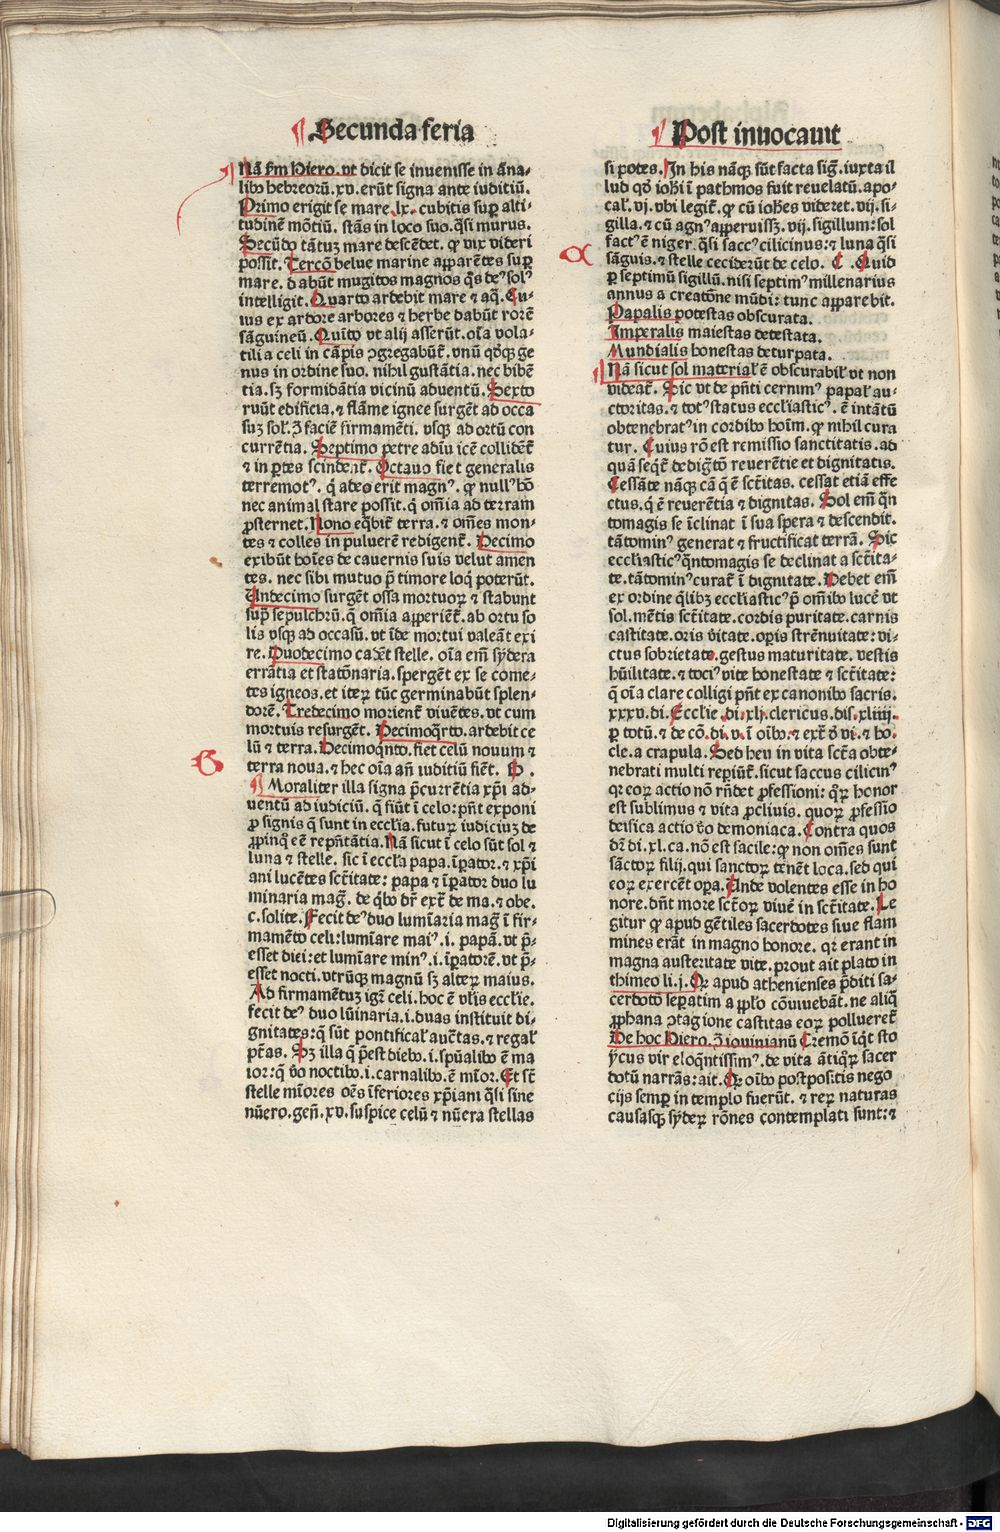 Secunda feria
Nā ſm Hiero. vt dicit ſe inueniſſe in Āna⸗
libꝰ hebreoꝝ. xv. erūt ſigna ante iuditiū.
Primo erigit ſe mare .lx. cubitis ſup alti⸗
tudinē mōtiū. ſtās in loco ſuo. qſi murus.
Secūdo tātuꝫ mare deſcēdet. ꝙ vix videri
poſſit. Tercō belue marine apparētes ſup
mare. dabūt mugitos magnos qs deꝰ solꝰ
intelligit. Quarto ardebit mare ⁊ aq̄. Cu⸗
ius ex ardore arbores ⁊ herbe dabūt rorē
ſāguineū. Quīto vt alij aſſerūt. oīa vola⸗
tilia celi in cāpis ɔgregabūt̄. vnū qdqꝫ ge
nus in ordine ſuo. nihil guſtātia. nec bibē
tia. ſꝫ formidātia vicinū aduentū. Sexto
ruūt edificia. ⁊ flāme ignee ſurgēt ad occa
ſuꝫ ſoł. ꝫ faciē firmamēti. vſqꝫ ad ortū con
currētia. Septimo petre adiuicē collidēt̄
⁊ in ptes ſcindent̄. Octauo fiet generalis
terremotꝰ. q̄ adeo erit magnꝰ. ꝙ nullꝰ hō
nec animal ſtare poſſit. q̄ om̄ia ad terram
ꝓſternet. Nono eq̄bit̄ terra. ⁊ om̄es mon⸗
tes ⁊ colles in puluerē redigent̄. Decimo
exibūt hoīes de cauernis ſuis velut amen
tes. nec ſibi mutuo p̄ timore loq̄ poterūt.
Undecimo ſurgēt oſſa mortuoꝝ ⁊ ſtabunt
ſup ſepulchrū. q̄ om̄ia apperiēt̄. ab ortu ſo
lis vſqꝫ ad occaſū. vt īde mortui valeāt exi
re. Duodecimo cadēt ſtelle. oīa em̄ ſydera
errātia et ſtatōnaria. ſpergēt ex ſe come⸗
tes igneos. et iteꝝ tūc germinabūt ſplen⸗
dorē. Tredecimo morient̄ viuētes. vt cum
mortuis reſurgēt. Decimoqrto. ardebit ce
lū ⁊ terra. Decimoqnto. fiet celū nouum ⁊
terra noua. ⁊ hec oīa an̄ iuditiū fiēt. P .
G
Moraliter illa ſigna p̄currētia xp̄i ad⸗
uentū ad iudiciū. q̄ fiūt ī celo: pn̄t exponi
ꝓ ſignis q̄ ſunt in eccłia. futuꝝ iudiciuꝫ de
ꝓpinq̄ eē rep̄ntātia. Nā ſicut ī celo ſūt ſol ⁊
luna ⁊ ſtelle. ſic ī eccła papa. īpator. ⁊ xp̄i
ani lucētes ſct̄itate: papa ⁊ īpator duo lu
minaria maḡ. de qbꝰ dr̄ ext̄ de ma. ⁊ obe.
c. ſolite. Fecit deꝰ duo lumīaria maḡ ī fir⸗
mamēto celi: lumīare maiꝰ .i. papā. vt p̄⸗
eſſet diei: et lumīare minꝰ .i. īpatorē. vt p̄⸗
eſſet nocti. vtrūqꝫ magnū ſꝫ alteꝝ maius.
Ad firmamētuꝫ igr̄ celi. hoc ē vłis eccłie.
fecit deꝰ duo lūinaria. i. duas inſtituit di⸗
gnitates: q̄ ſūt pontificał auct̄as. ⁊ regał
pt̄as. Sꝫ illa q̄ p̄eſt diebꝰ .i. ſpūalibꝰ ē ma
ior: q̄ ꝟo noctibꝰ .i. carnalibꝰ ē mīor. Et ſt̄
ſtelle mīores oēs īferiores xp̄iani qſi ſine
nūero. gen̄. xv. ſuſpice celū ⁊ nūera ſtellas
Poſt inuocauit
ſi potes. In his nāqꝫ ſūt facta ſiḡ. iuxta il
lud qd iohī ī pathmos fuit reuelatū. apo⸗
cał. vj. vbi legit̄. ꝙ cū iohēs videret. vij. ſi⸗
gilla. ⁊ cū agnꝰ apperuiſſꝫ. vij. ſigillum: ſol
factꝰ ē niger. qſi ſaccꝰ cilicinus: ⁊ luna qſi
ſāguis. ⁊ ſtelle ceciderūt de celo. C . Quid
p ſeptimū ſigillū. niſi ſeptimꝰ millenarius
annus a creatōne mūdi: tunc apparebit.
Papalis poteſtas obſcurata.
Imperalis maieſtas deteſtata.
Mundialis honeſtas deturpata.
Nā ſicut ſol material̓ ē obſcurabił vt non
videat̄. Sic vt de pn̄ti cernimꝰ papał au⸗
ctoritas. ⁊ totꝰ ſtatus eccłiaſticꝰ. ē intātū
obtenebratꝰ in cordibꝰ hoīm. ꝙ nihil cura
tur. Cuius rō eſt remiſſio ſanctitatis. ad
quā ſeqt̄ de dig̓tō reuerētie et dignitatis.
Ceſſāte nāqꝫ cā q̄ ē ſct̄itas. ceſſat etiā effe
ctus. q̄ ē reuerētia ⁊ dignitas. Sol em̄ q̄n
tomagis ſe īclinat ī ſua ſpera ⁊ deſcendit.
tātominꝰ generat ⁊ fructificat terrā. Sic
eccłiaſticꝰ q̄ntomagis ſe declinat a ſct̄ita⸗
te. tātominꝰ curat̄ ī dignitate. Debet em̄
ex ordine qlibꝫ eccłiaſticꝰ p̄ om̄ibꝰ lucē vt
ſol. mētis ſct̄itate. cordis puritate. carnis
caſtitate. oris ꝟitate. opis ſtrēnuitate: vi⸗
ctus ſobrietate. geſtus maturitate. veſtis
hūilitate. ⁊ totiꝰ vite honeſtate ⁊ ſct̄itate:
q̄ oīa clare colligi pn̄t ex canonibꝰ ſacris.
xxxv. di. Eccłie .di. xlj. clericus. diſ. xliiij.
p totū. ⁊ de cō. di. v. ī oībꝰ. ⁊ ext̄ ꝺ vi. ⁊ ho.
cle. a crapula. Sed heu in vita ſct̄a obte⸗
nebrati multi repiūt̄. ſicut ſaccus cilicinꝰ
qꝛ eoꝝ actio nō rn̄det ꝓfeſſioni: qꝝ honor
eſt ſublimus ⁊ vita ꝓcliuis. quoꝝ ꝓfeſſio
deifica actio ꝟo demoniaca. Contra quos
dr̄ di. xl. ca. nō eſt facile: ꝙ non om̄es ſunt
ſāctoꝝ filij. qui ſanctoꝝ tenēt loca. ſed qui
eoꝝ exercēt opa. Unde volentes eſſe in ho
nore. dn̄t more ſctōꝝ viuē in ſct̄itate. Le
gitur ꝙ apud gētiles ſacerdotes ſiue flam
mines erāt in magno honore. qꝛ erant in
magna auſteritate vite. prout ait plato in
thimeo li. j. Qꝛ apud athenienſes p̄diti ſa⸗
cerdotō ſepatim a ppło cōuiuebāt. ne aliq̄
ꝓphana ɔtagione caſtitas eoꝝ polluеret̄
De hoc Hiero. ꝫ iouinianū Cremō īqt ſto
ycus vir eloqntiſſimꝰ. de vita ātiqꝝ ſacer
dotū narrās: ait. Qꝛ oībꝰ poſtpoſitis nego
cijs ſemp in templo fuerūt. ⁊ reꝝ naturas
cauſasqꝫ ſydeꝝ rōnes contemplati ſunt: ⁊
Digitalisierung gefördert durch die Deutsche Forschungsgemeinschaft - DFG